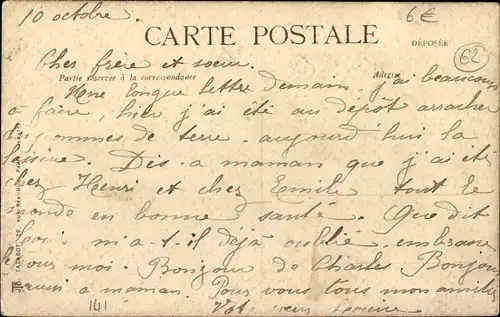 10 octobre.
6€
CARTE POSTALE
DÉPOSÉE
62
Cher frère et sœur.
Partie réservée à la correspondance
Adresse
Une longue lettre demain, j'ai beaucoup
à faire, hier j'ai été au dépôt arracher
des pommes de terre. aujourd'hui la
lessive. Dis à maman que j'ai été
chez Henri et chez Emile tout le
monde en bonne santé. Que dit
m'a-t-il déjà oublié. embrasse
le pour moi. Bonjour de Charles Bonjour
aussi à maman. Pour vous tous mon amitié
Vot. sœur
141